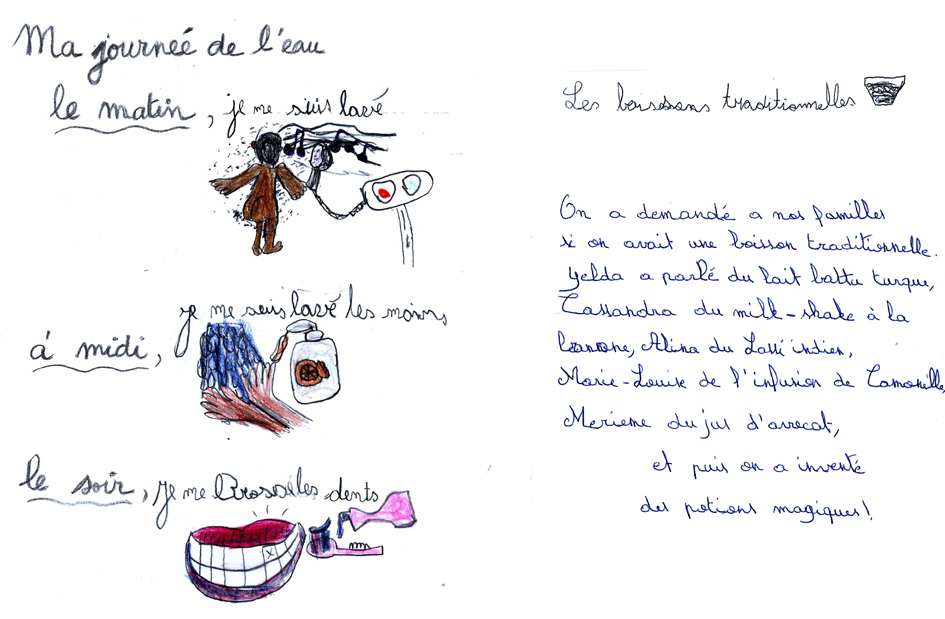 Ma journeé de l'eau
le matin, je me suis lavé
je me suis lavé les mains
á midi,
le soir, je me Brossé les dents
Les boissons traditionnelles
On a demandé a nos familles
si on avait une boisson traditionnelle.
Yelda a parlé du lait battu turque,
Cassandra du milk-shake à la
banane, Alina du Lassi indien,
Marie-Louise de l'infusion de Camomille,
Merieme du jus d'avocat,
et puis on a inventé
des potions magiques!